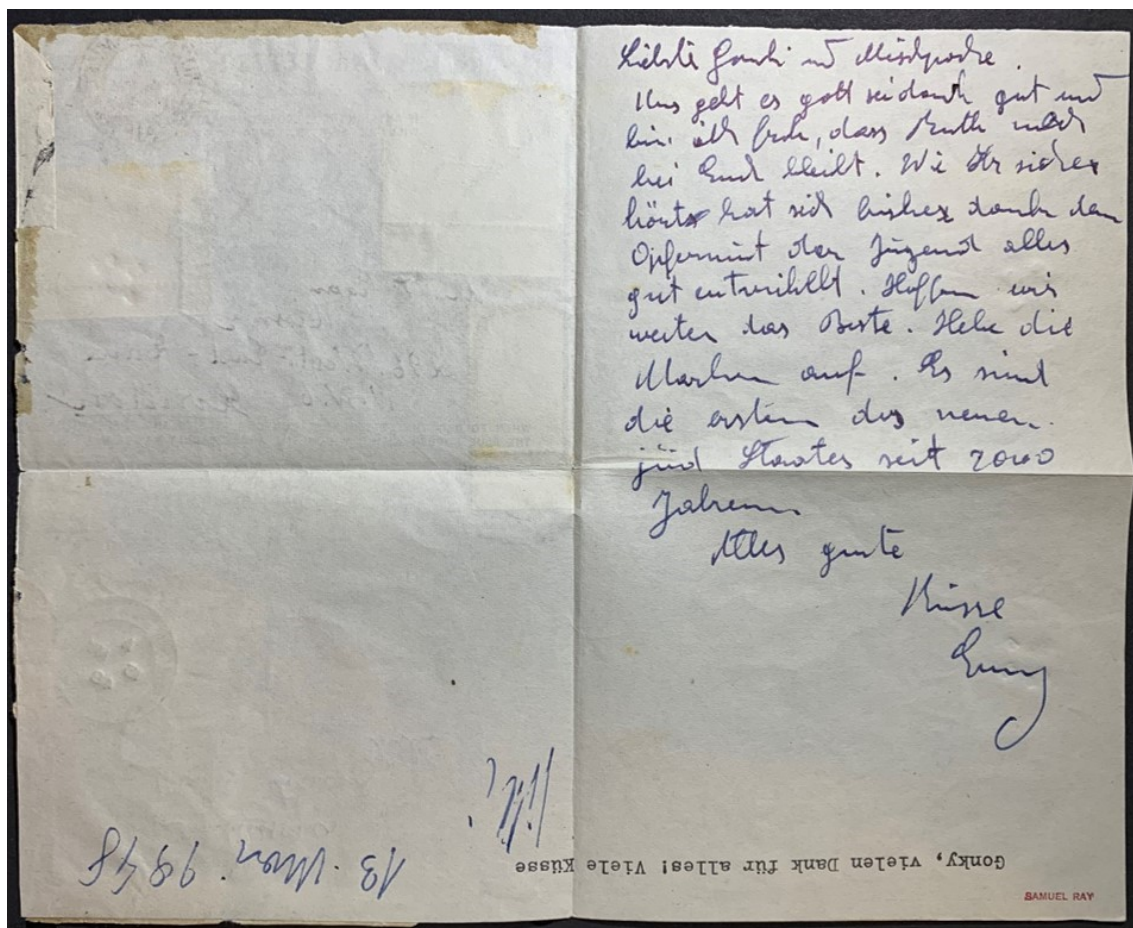 Liebste Gonki und Mischpoche.
Uns geht es gott seidank gut und
bin ich froh, dass Ruth noch
bei Euch bleibt. Wie Ihr sicher
hört hat sich bisher dank dem
Opfermut der Jugend alles
gut entwickelt. Hoffen wir
weiter das Beste. Hebe die
Marken auf. Es sind
die ersten des neuen
jüd Staates seit 2000
Jahren
Alles gute
Küsse
Gonky, vielen Dank für alles! Viele Küsse
13. 1948
SAMUEL RAY